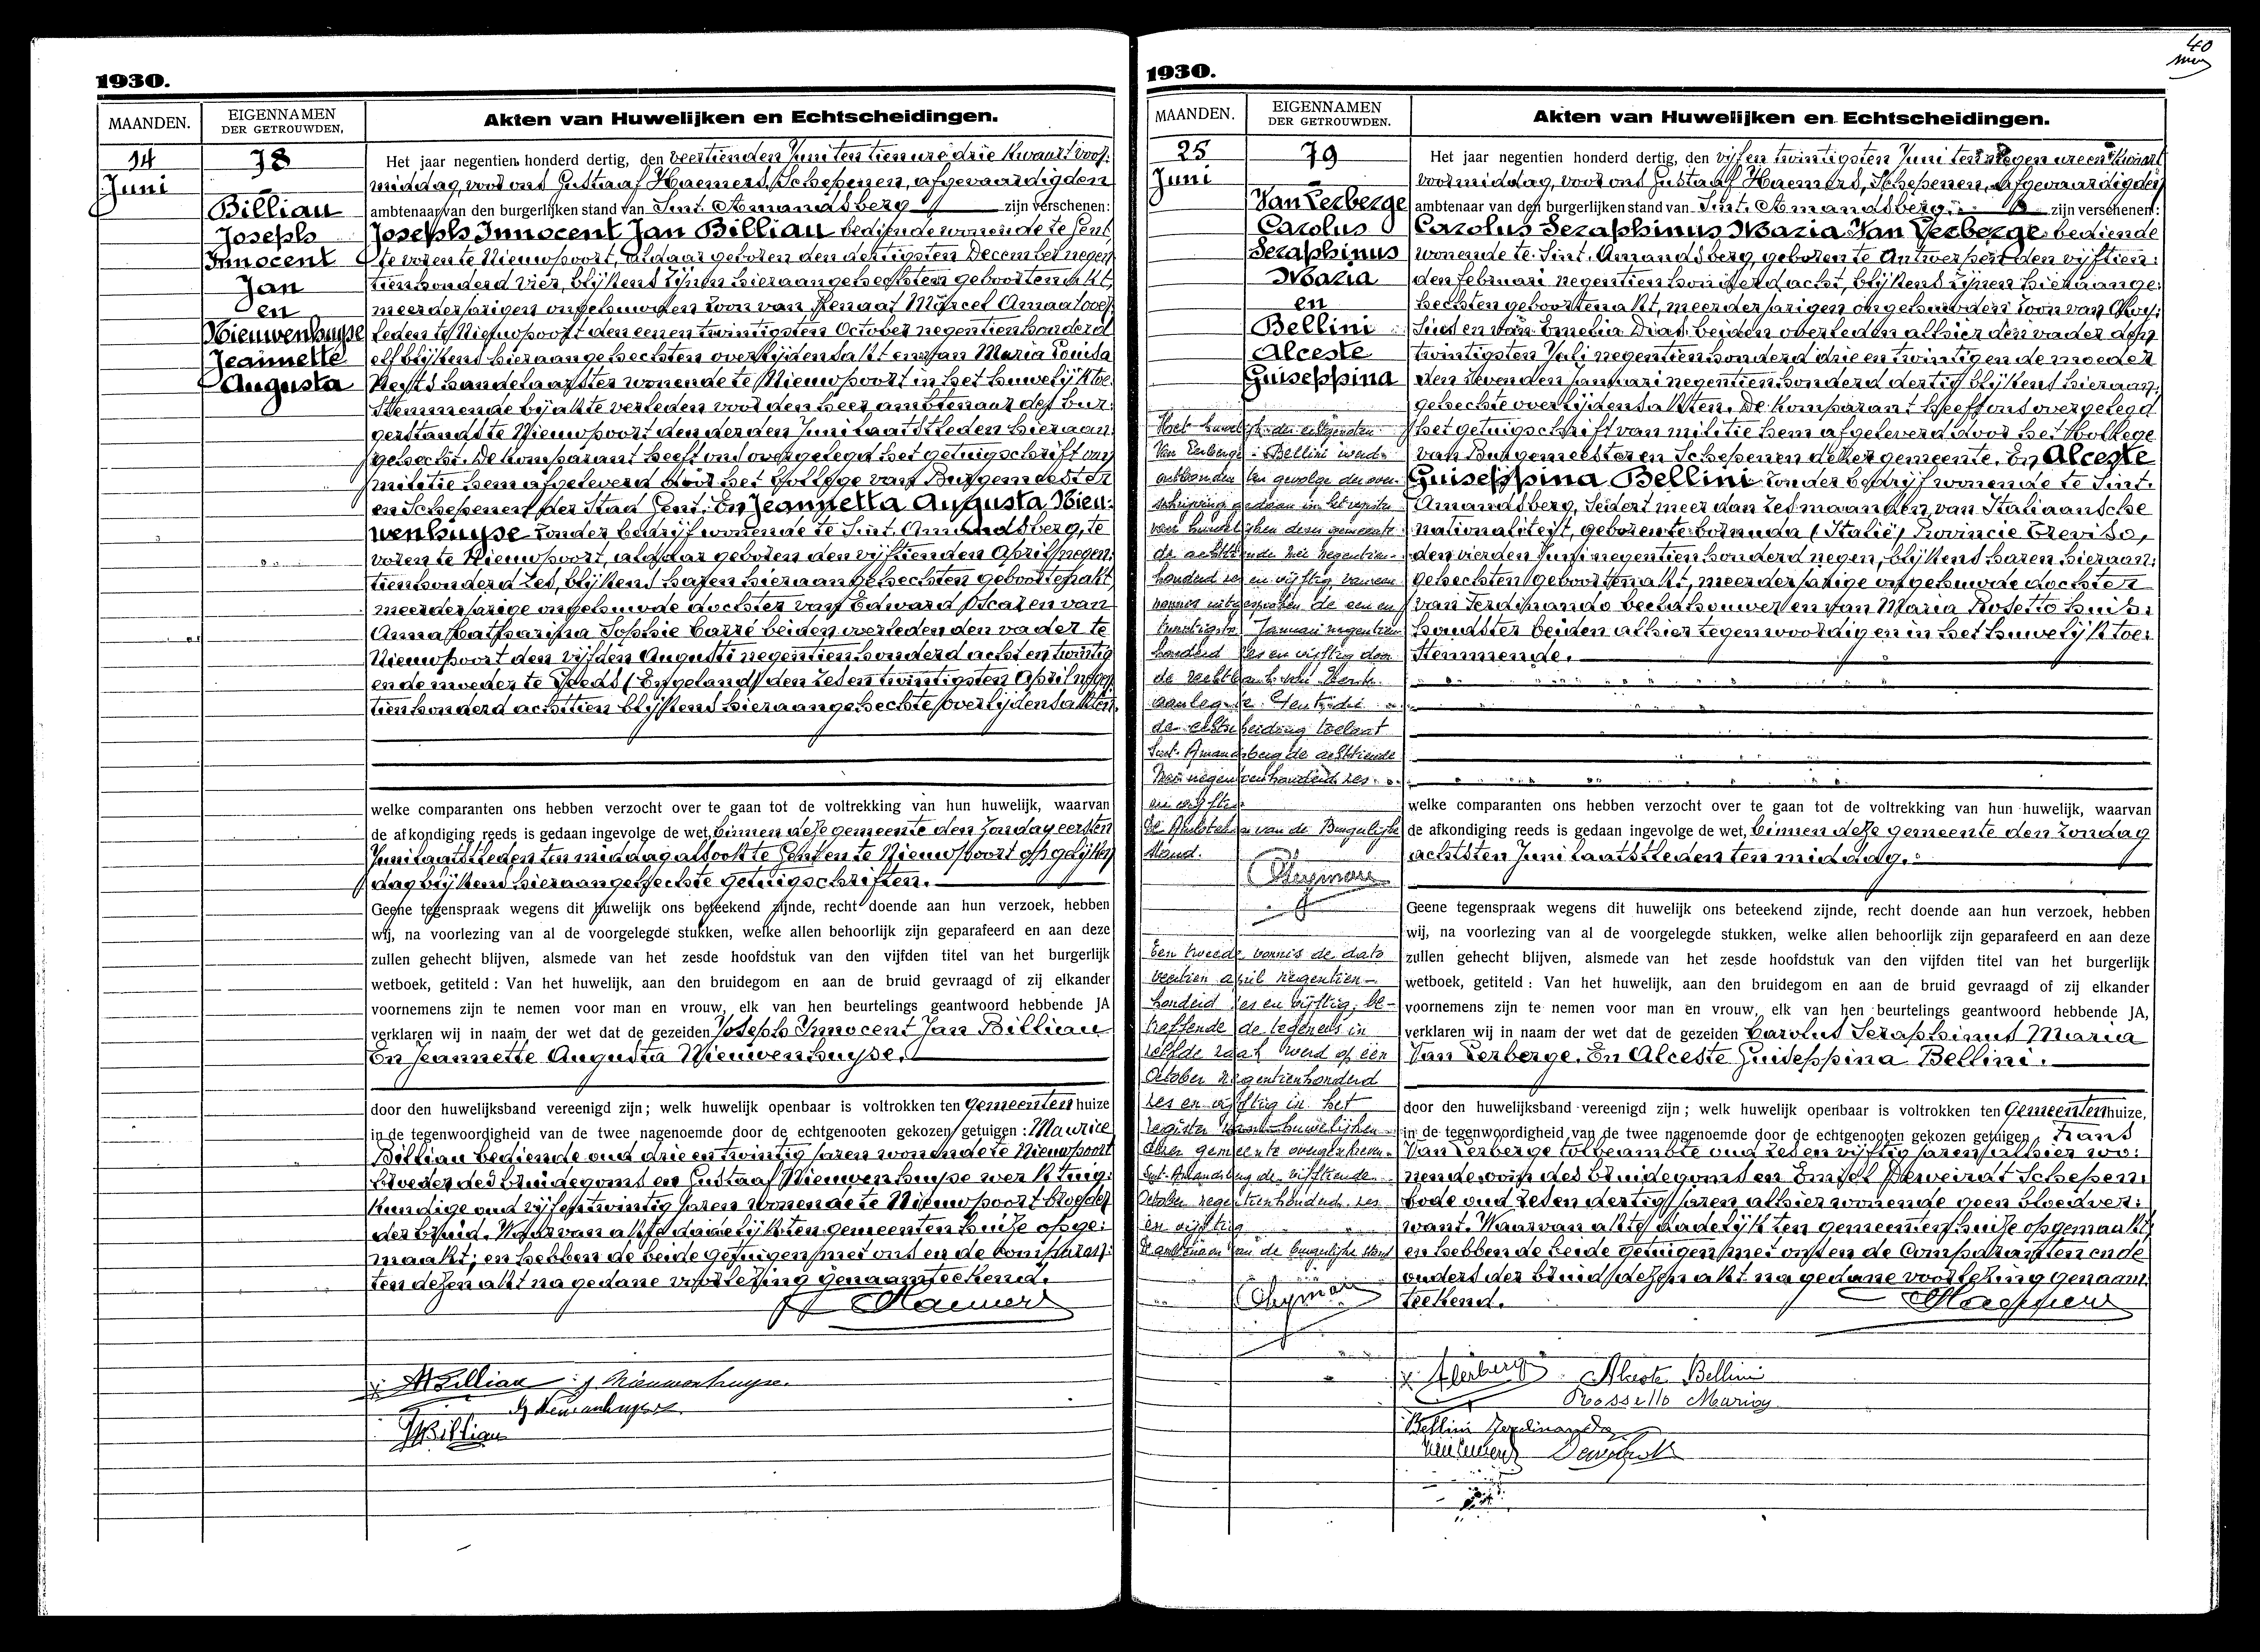 1930.
MAANDEN.
EIGENNAMEN
DER GETROUWDEN,
Akten van Huwelijken en Echtscheidingen.
14
Juni
78
Billiau
Joseph
Innocent
Jan
en
Nieuwenhuyse
Jeannette
Augusta
Het jaar negentien honderd dertig, den veertienden Juni ten tien ure drie kwaart voor:
middag, voor ons Gustaaf Haemers, Schepenen, afgevaardigden
ambtenaar van den burgerlijken stand van Sint. Amandsberg zijn verschenen:
Joseph Innocent Jan Billiau bediende wonende te Gent,
te voren te Nieuwpoort, aldaar geboren den dertigsten December negen
tienhonderd vier, blijkens zijnen hieraangehechten geboortenakt,
meerderjarigen ongehuwden zoon van Renaat Marcel Amaat over
leden te Nieuwpoort den eenen twintigsten October negentienhonderd
elf blijkens hieraangehechten overlijdensakt en van Maria Louisa
handelaarster wonende te Nieuwpoort in het huwelijk toe:
stemmende bij akte verleden voor den heer ambtenaar des bur:
gerstands te Nieuwpoort den derden Juni laatstleden hieraan
gehecht. De komparant heeft ons overgelegd het getuigschrift van
militie hem afgeleverd door het Kollege van Burgemeester
en Schepenen der Stad Gent. En Jeannetta Augusta Nieu:
wenhuyse zonder bedrijf wonende te Sint. Amandsberg, te
voren te Nieuwpoort, aldaar geboren den vijftienden April negen:
tienhonderd zes, blijkens haren hieraangehechten geboortenakt
meerderjarige ongehuwde dochter van Edward Oscar en van
Anna Catharina Sophie Carré beiden overleden den vader te
Nieuwpoort den vijfden Augusti negentienhonderd acht en twintig
en de moeder te Leeds (Engeland) den zes en twintigsten April negen
tienhonderd achttien blijkens hieraangehechte overlijdensakten.
welke comparanten ons hebben verzocht over te gaan tot de voltrekking van hun huwelijk, waarvan
de afkondiging reeds is gedaan ingevolge de wet, binnen deze gemeente den Zondag eersten
Juni laatstleden ten middag alsook te Gent en te Nieuwpoort op gelijken
dag blijkens hieraangehechte getuigschriften.
Geene tegenspraak wegens dit huwelijk ons beteekend zijnde, recht doende aan hun verzoek, hebben
wij, na voorlezing van al de voorgelegde stukken, welke allen behoorlijk zijn geparafeerd en aan deze
zullen gehecht blijven, alsmede van het zesde hoofdstuk van den vijfden titel van het burgerlijk
wetboek, getiteld : Van het huwelijk, aan den bruidegom en aan de bruid gevraagd of zij elkander
voornemens zijn te nemen voor man en vrouw, elk van hen beurtelings geantwoord hebbende JA
verklaren wij in naam der wet dat de gezeiden Joseph Innocent Jan Billiau
En Jeannette Augusta Nieuwenhuyse.
door den huwelijksband vereenigd zijn; welk huwelijk openbaar is voltrokken ten Gemeenten huize
in de tegenwoordigheid van de twee nagenoemde door de echtgenooten gekozen getuigen : Maurice
Billiau bediende oud drie en twintig jaren wonende te Nieuwpoort
broeder des bruidegoms en Gustaaf Nieuwenhuyse werktuig:
kundige oud vijf en twintig jaren wonende te Nieuwpoort broeder
der bruid. Waarvan akte dadelijk ten gemeenten huize opge:
maakt; en hebben de beide getuigen met ons en de komparan:
ten dezen akt na gedane voorlezing genaamteekend.
Haemers
MBilliau J. Nieuwenhuyse.
G Nieuwenhuyse
JBilliau
1930.
40
MAANDEN.
EIGENNAMEN
DER GETROUWDEN.
Akten van Huwelijken en Echtscheidingen.
25
Juni
79
Van Lerberge
Carolus
Seraphinus
Maria
en
Bellini
Alceste
Guiseppina
Het huwelijk der echtgenoten
Van Lerberge - Bellini werd
ontbonden ten gevolge der over
schrijving gedaan in het register
van huwelijken dezer gemeente
de achttiende Mei negentien
honderd zes en vijftig, van een
vonnis uitgesproken de een en
twintigste Januari negentien
honderd zes en vijftig door
de rechtbank van Eerste
aanleg te Gent, die
de echtscheiding toelaat
Sint-Amandsberg de achttiende
Mei negentienhonderd zes
en vijftig.
De Ambtenaar van de Burgerlijke
Stand.
Een tweede vonnis de dato
veertien april negentien-
honderd zes en vijftig, be-
treffende de tegeneis in
zelfde zaak werd op één
October negentienhonderd
zes en vijftig in het
register van huwelijken
dezer gemeente overgeschreven.
Sint-Amandsberg de vijftiende
October negentienhonderd zes
en vijftig
De ambtenaar van de burgerlijke stand
Het jaar negentien honderd dertig, den vijfen twintigsten Juni ten negen ure en kwaart
voormiddag, voor ons Gustaaf Haemers, Schepenen, afgevaardigden
ambtenaar van den burgerlijken stand van Sint. Amandsberg zijn verschenen:
Carolus Seraphinus Maria Van Lerberge bediende
wonende te Sint. Amandsberg, geboren te Antwerpen den vijftien:
den februari negentienhonderd acht, blijkens zijnen hieraange:
hechten geboortenakt, meerderjarigen ongehuwden zoon van Aloy:
sius en van Emelia Dias beiden overleden alhier den vader den
twintigsten Juli negentienhonderd drie en twintig en de moeder
den zevenden Januari negentienhonderd dertig blijkens hieraan:
gehechte overlijdensakten. De komparant heeft ons overgelegd
het getuigschrift van militie hem afgeleverd door het Kollege
van Burgemeester en Schepenen dezer gemeente. En Alceste
Guiseppina Bellini zonder bedrijf wonende te Sint.
Amandsberg, sedert meer dan zes maanden, van Italiaansche
nationaliteit, geboren te Cornuda (Italië) Provincie Treviso,
den vierden Juni negentienhonderd negen, blijkens haren hieraan:
gehechten geboortenakt, meerderjarige ongehuwde dochter
van Ferdinando beeldhouwer en van Maria Rosetto huis:
houdster beiden alhier tegenwoordig en in het huwelijk toe:
stemmende.
welke comparanten ons hebben verzocht over te gaan tot de voltrekking van hun huwelijk, waarvan
de afkondiging reeds is gedaan ingevolge de wet, binnen deze gemeente den Zondag
achtsten Juni laatstleden ten middag.
Geene tegenspraak wegens dit huwelijk ons beteekend zijnde, recht doende aan hun verzoek, hebben
wij, na voorlezing van al de voorgelegde stukken, welke allen behoorlijk zijn geparafeerd en aan deze
zullen gehecht blijven, alsmede van het zesde hoofdstuk van den vijfden titel van het burgerlijk
wetboek, getiteld : Van het huwelijk, aan den bruidegom en aan de bruid gevraagd of zij elkander
voornemens zijn te nemen voor man en vrouw, elk van hen beurtelings geantwoord hebbende JA,
verklaren wij in naam der wet dat de gezeiden Carolus Seraphinus Maria
Van Lerberge. En Alceste Guiseppina Bellini.
door den huwelijksband vereenigd zijn ; welk huwelijk openbaar is voltrokken ten Gemeentenhuize,
in de tegenwoordigheid van de twee nagenoemde door de echtgenooten gekozen getuigen Frans
Van Lerberge tolbeambte oud zes en vijftig jaren alhier wo:
nende oom des bruidegoms en Emiel Deweirdt Schepen:
bode oud zes en dertig jaren alhier wonende geen bloedver:
want. Waarvan akte dadelijk ten gemeentenhuize opgemaakt
en hebben de beide getuigen met ons en de Comparanten en de
ouders der bruid dezen akt na gedane voorlezing genaam:
teekend.
Haemers
Alceste Bellini
Rossetto Maria
Bellini Ferdinando